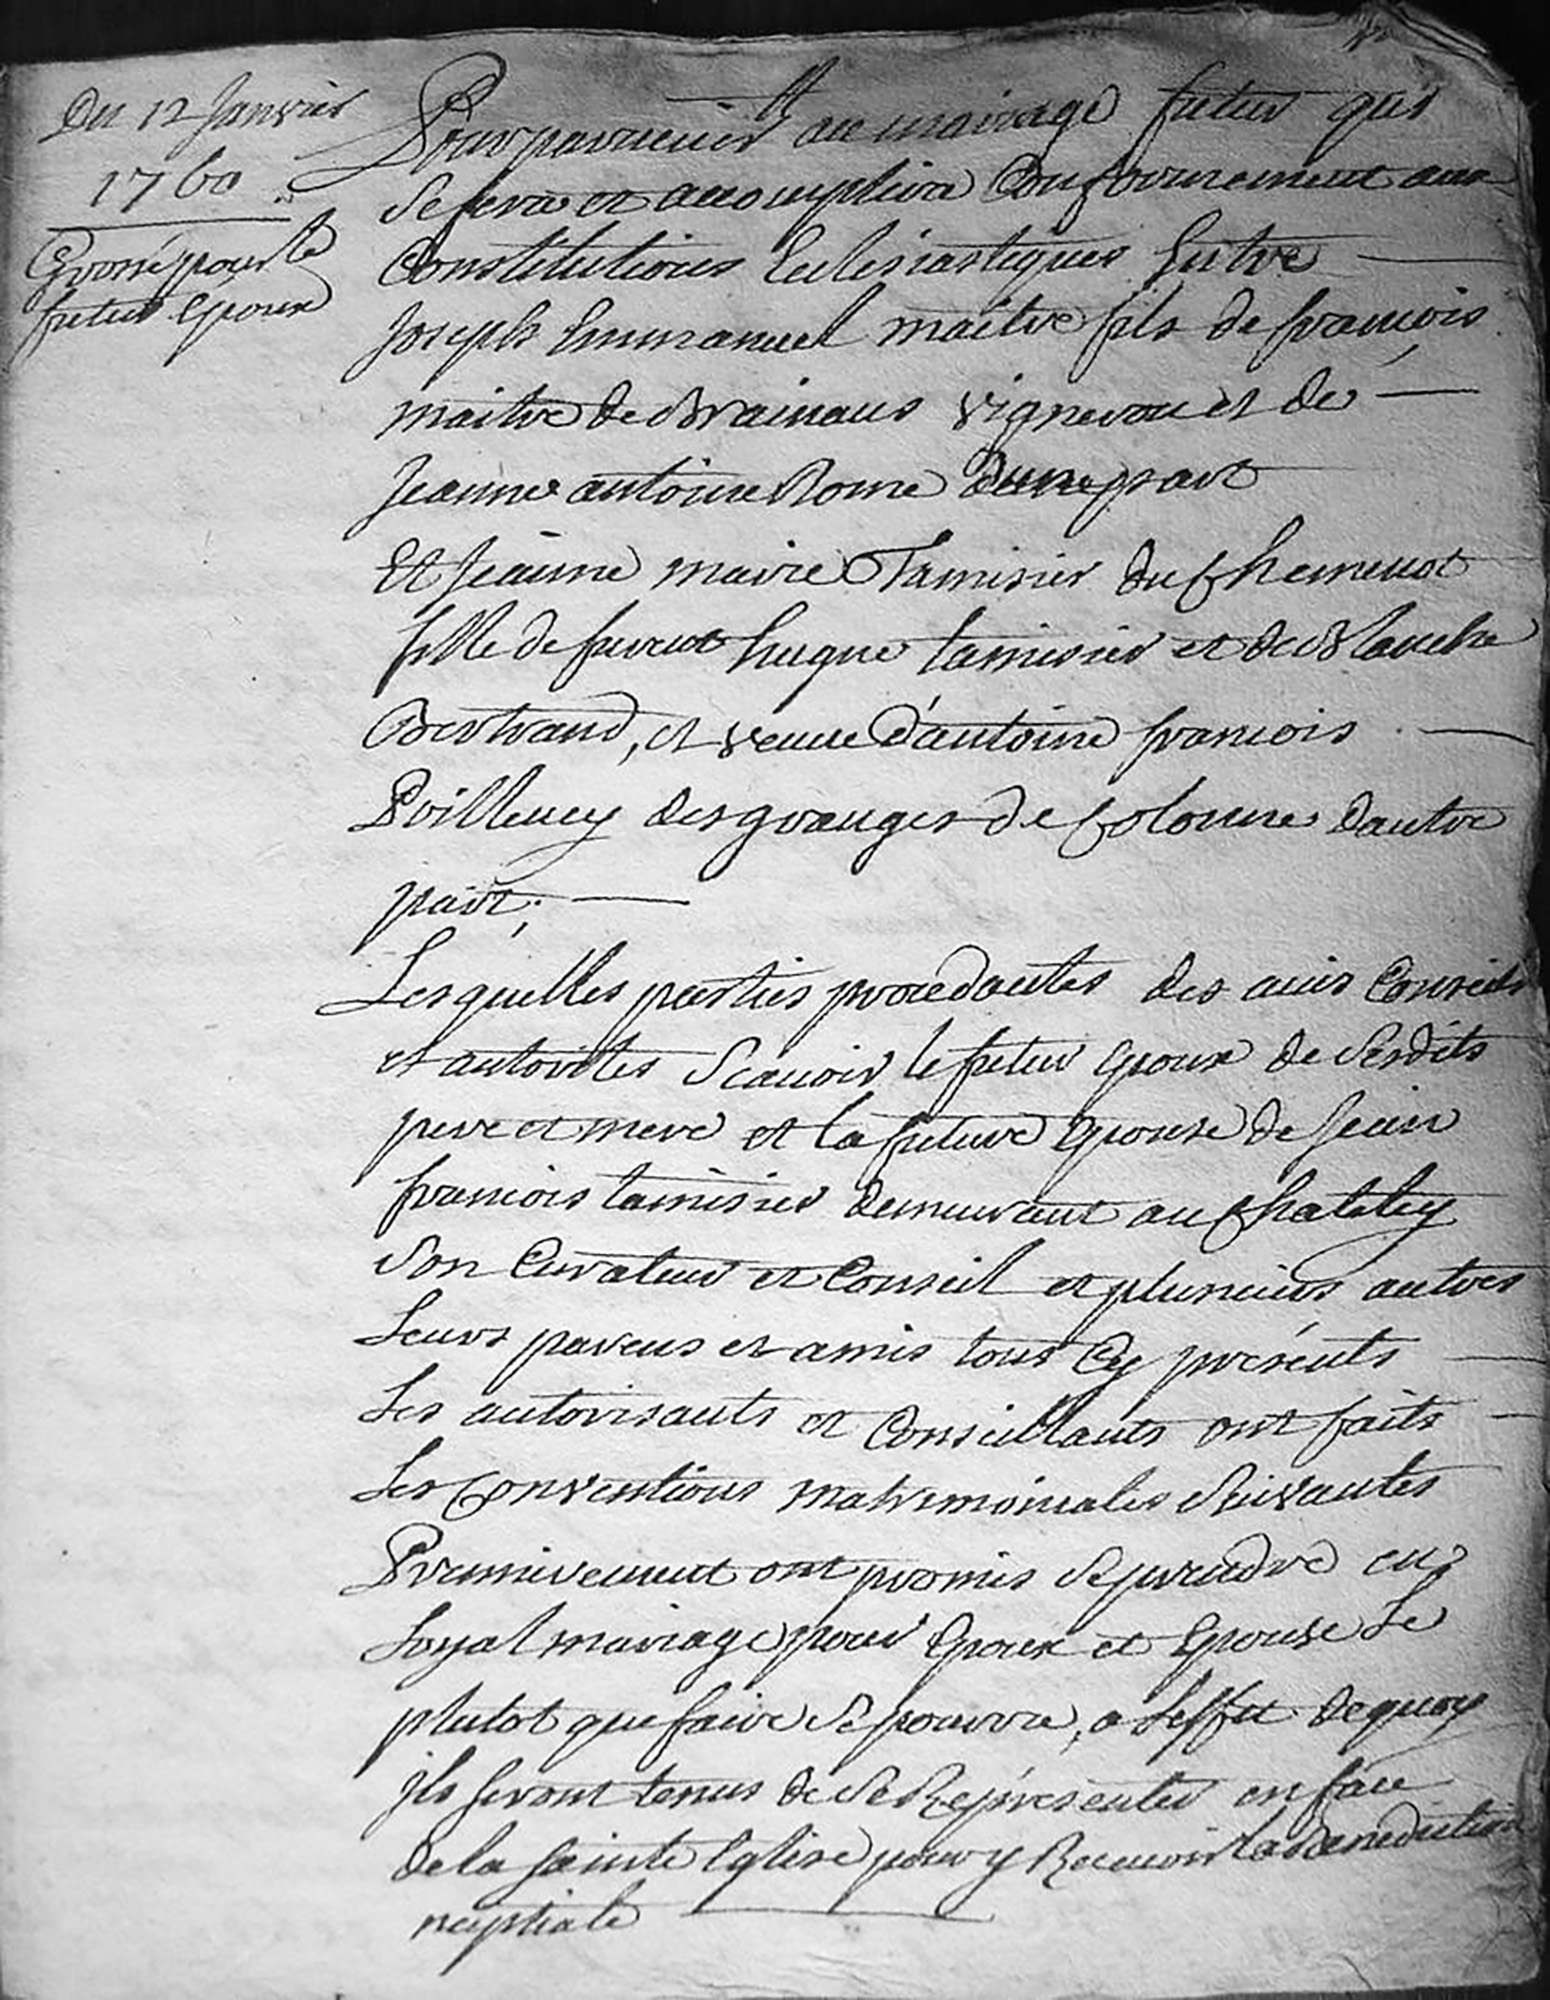 Du 12 Janvier
1760
Grossé pour le
futur epoux
Pour parvenir au mariage futur qui
Se fera et accomplira Conformement aux
Constitutions Eclesiastiques Entre
Joseph Emmanuel maitre fils de francois
maitre de Brainans vigneron et de
Jeanne antoine Rome dune part
Et Jeanne marie Tamisier du Chemenot
fille de fut hugue tamisier et de Blanche
Bertrand, et veuve d'antoine francois
Poilleney des granges de Colonne dautre
part;
Lesquelles parties procedantes des avis Conseils
et autorités Scavoir le futur Epoux de Sesdits
pere et mere et la future Epouse de Jean
francois tamisier demeurant au Chateley
Son Curateur et Conseil et plusieurs autres
Leurs parens et amis tous Cy présents
Les autorisants et Conseillants ont faits
Les Conventions matrimoniales Suivantes
Premierement ont promis Se prendre en
Loyal mariage pour Epoux et Epouse Le
plutot que faire Se pourra, a Leffet de quoy
jls seront tenus de Se Représenter en face
de la Sainte Eglise pour y Recevoir la Benediction
nuptiale